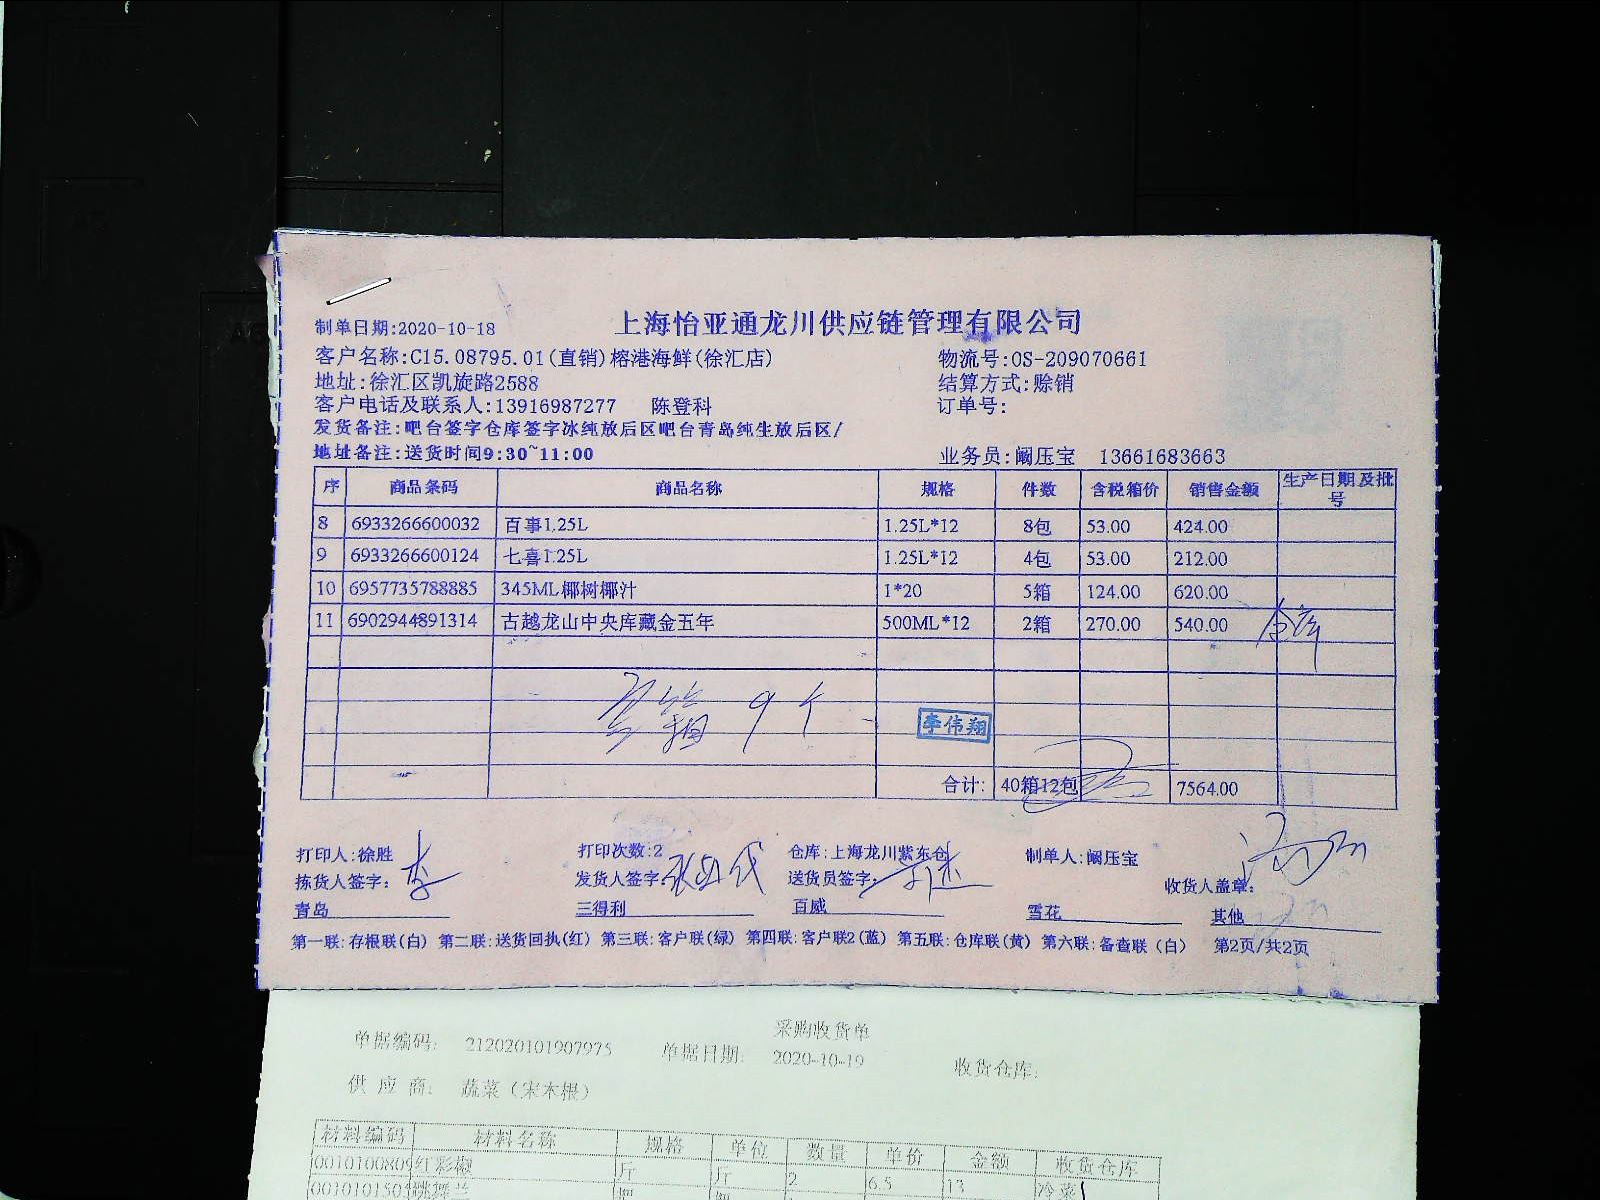 上海怡亚通龙川供应链管理有限公司
制单日期:2020-10-18
客户名称:C15.08795.01(直销)榕港海鲜(徐汇店) 物流号:OS-209070661
地址:徐汇区凯旋路2588 结算方式:赊销
客户电话及联系人:13916987277 陈登科 订单号:
发货备注:吧台签字仓库签字冰纯放后区吧台青岛纯生放后区/
地址备注:送货时间9:30~11:00 业务员:阚压宝 13661683663
序 商品条码 商品名称 规格 件数 含税箱价 销售金额 生产日期及批号
8 6933266600032 百事1.25L 1.25L*12 8包 53.00 424.00
9 6933266600124 七喜1.25L 1.25L*12 4包 53.00 212.00
10 6957735788885 345ML椰树椰汁 1*20 5箱 124.00 620.00
11 6902944891314 古越龙山中央库藏金五年 500ML*12 2箱 270.00 540.00
9个
李伟翔
合计: 40箱12包 7564.00
打印人:徐胜 打印次数:2 仓库:上海龙川紫东仓 制单人:阚压宝
拣货人签字: 李 发货人签字: 送货员签字: 收货人盖章:
青岛 三得利 百威 雪花 其他
第一联:存根联(白) 第二联:送货回执(红) 第三联:客户联(绿) 第四联:客户联2(蓝) 第五联:仓库联(黄) 第六联:备查联(白) 第2页/共2页
采购收货单
单据编码: 212020101907975 单据日期: 2020-10-19 收货仓库:
供应商: 蔬菜(宋本根)
材料编码 材料名称 规格 单位 数量 单价 金额 收货仓库
0010100809 红彩椒 斤 斤 2 6.5 13 冷菜